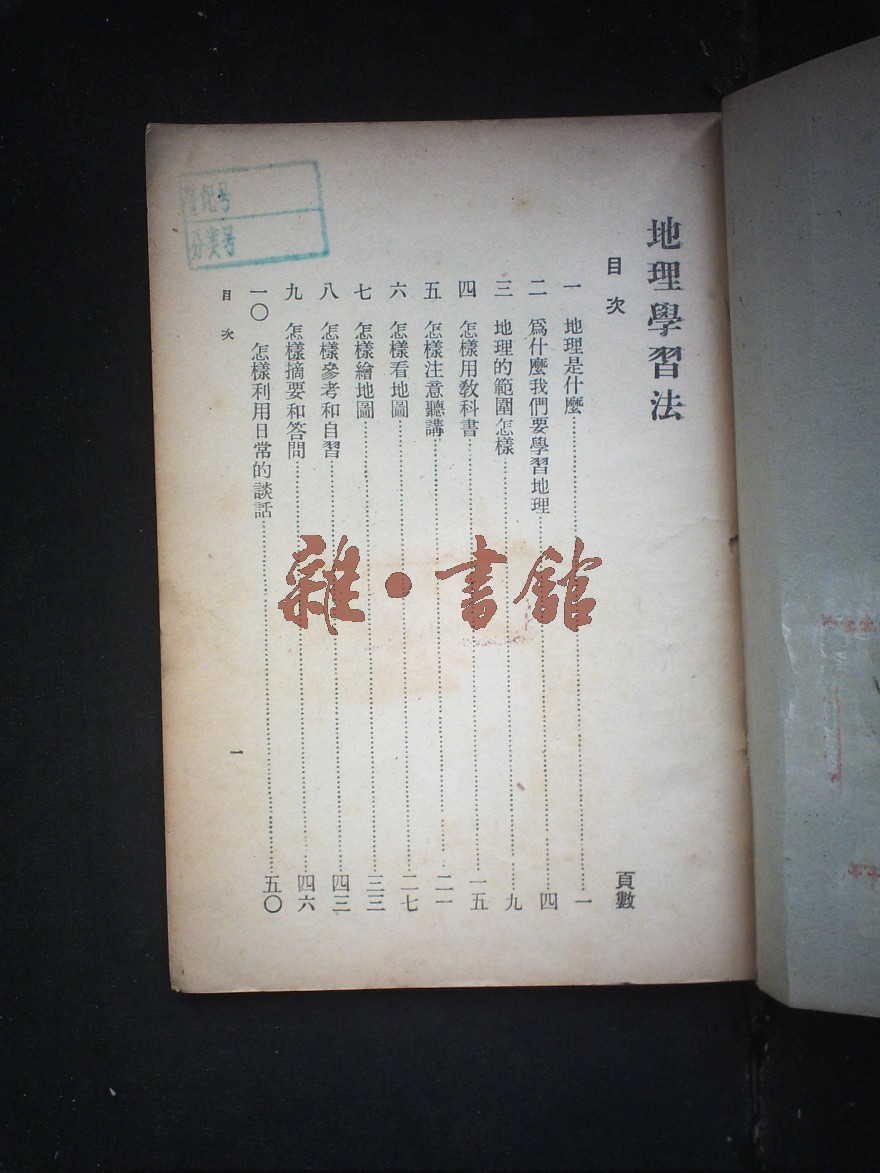 地理學習法
目次
頁數
一 地理是什麼……一
二 爲什麼我們要學習地理……四
三 地理的範圍怎樣……九
四 怎樣用教科書……一五
五 怎樣注意聽講……二一
六 怎樣看地圖……二七
七 怎樣繪地圖……三三
八 怎樣參考和自習……四三
九 怎樣摘要和答問……四六
一〇 怎樣利用日常的談話……五〇
目次
一
登记号
分类号
雜·書館